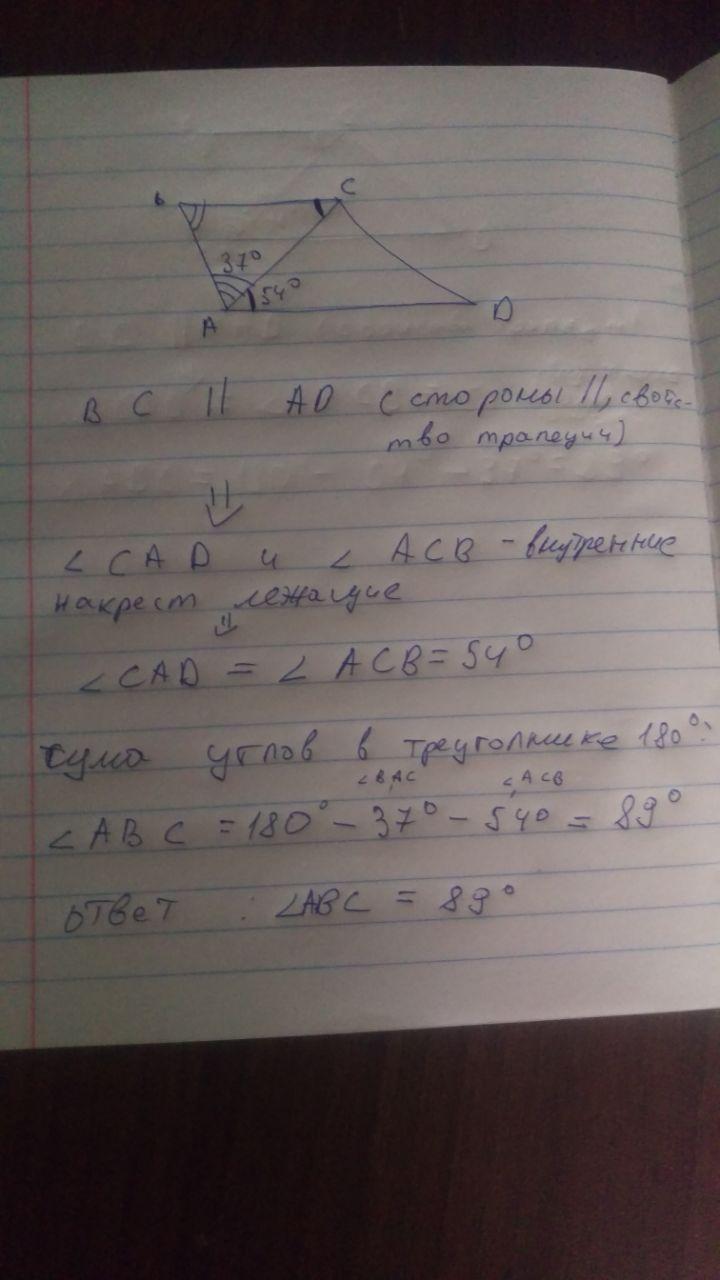 в C
37°
54°
A D
B C || AD (стороны ||, свойс-
тво трапеции)
⇓
∠ CAD и ∠ ACB - внутренние
накрест лежащие
⇓
∠CAD = ∠ ACB = 54°
сума углов в треуголнике 180°:
∠BAC ∠ACB
∠ABC = 180° - 37° - 54° = 89°
ответ : ∠ABC = 89°